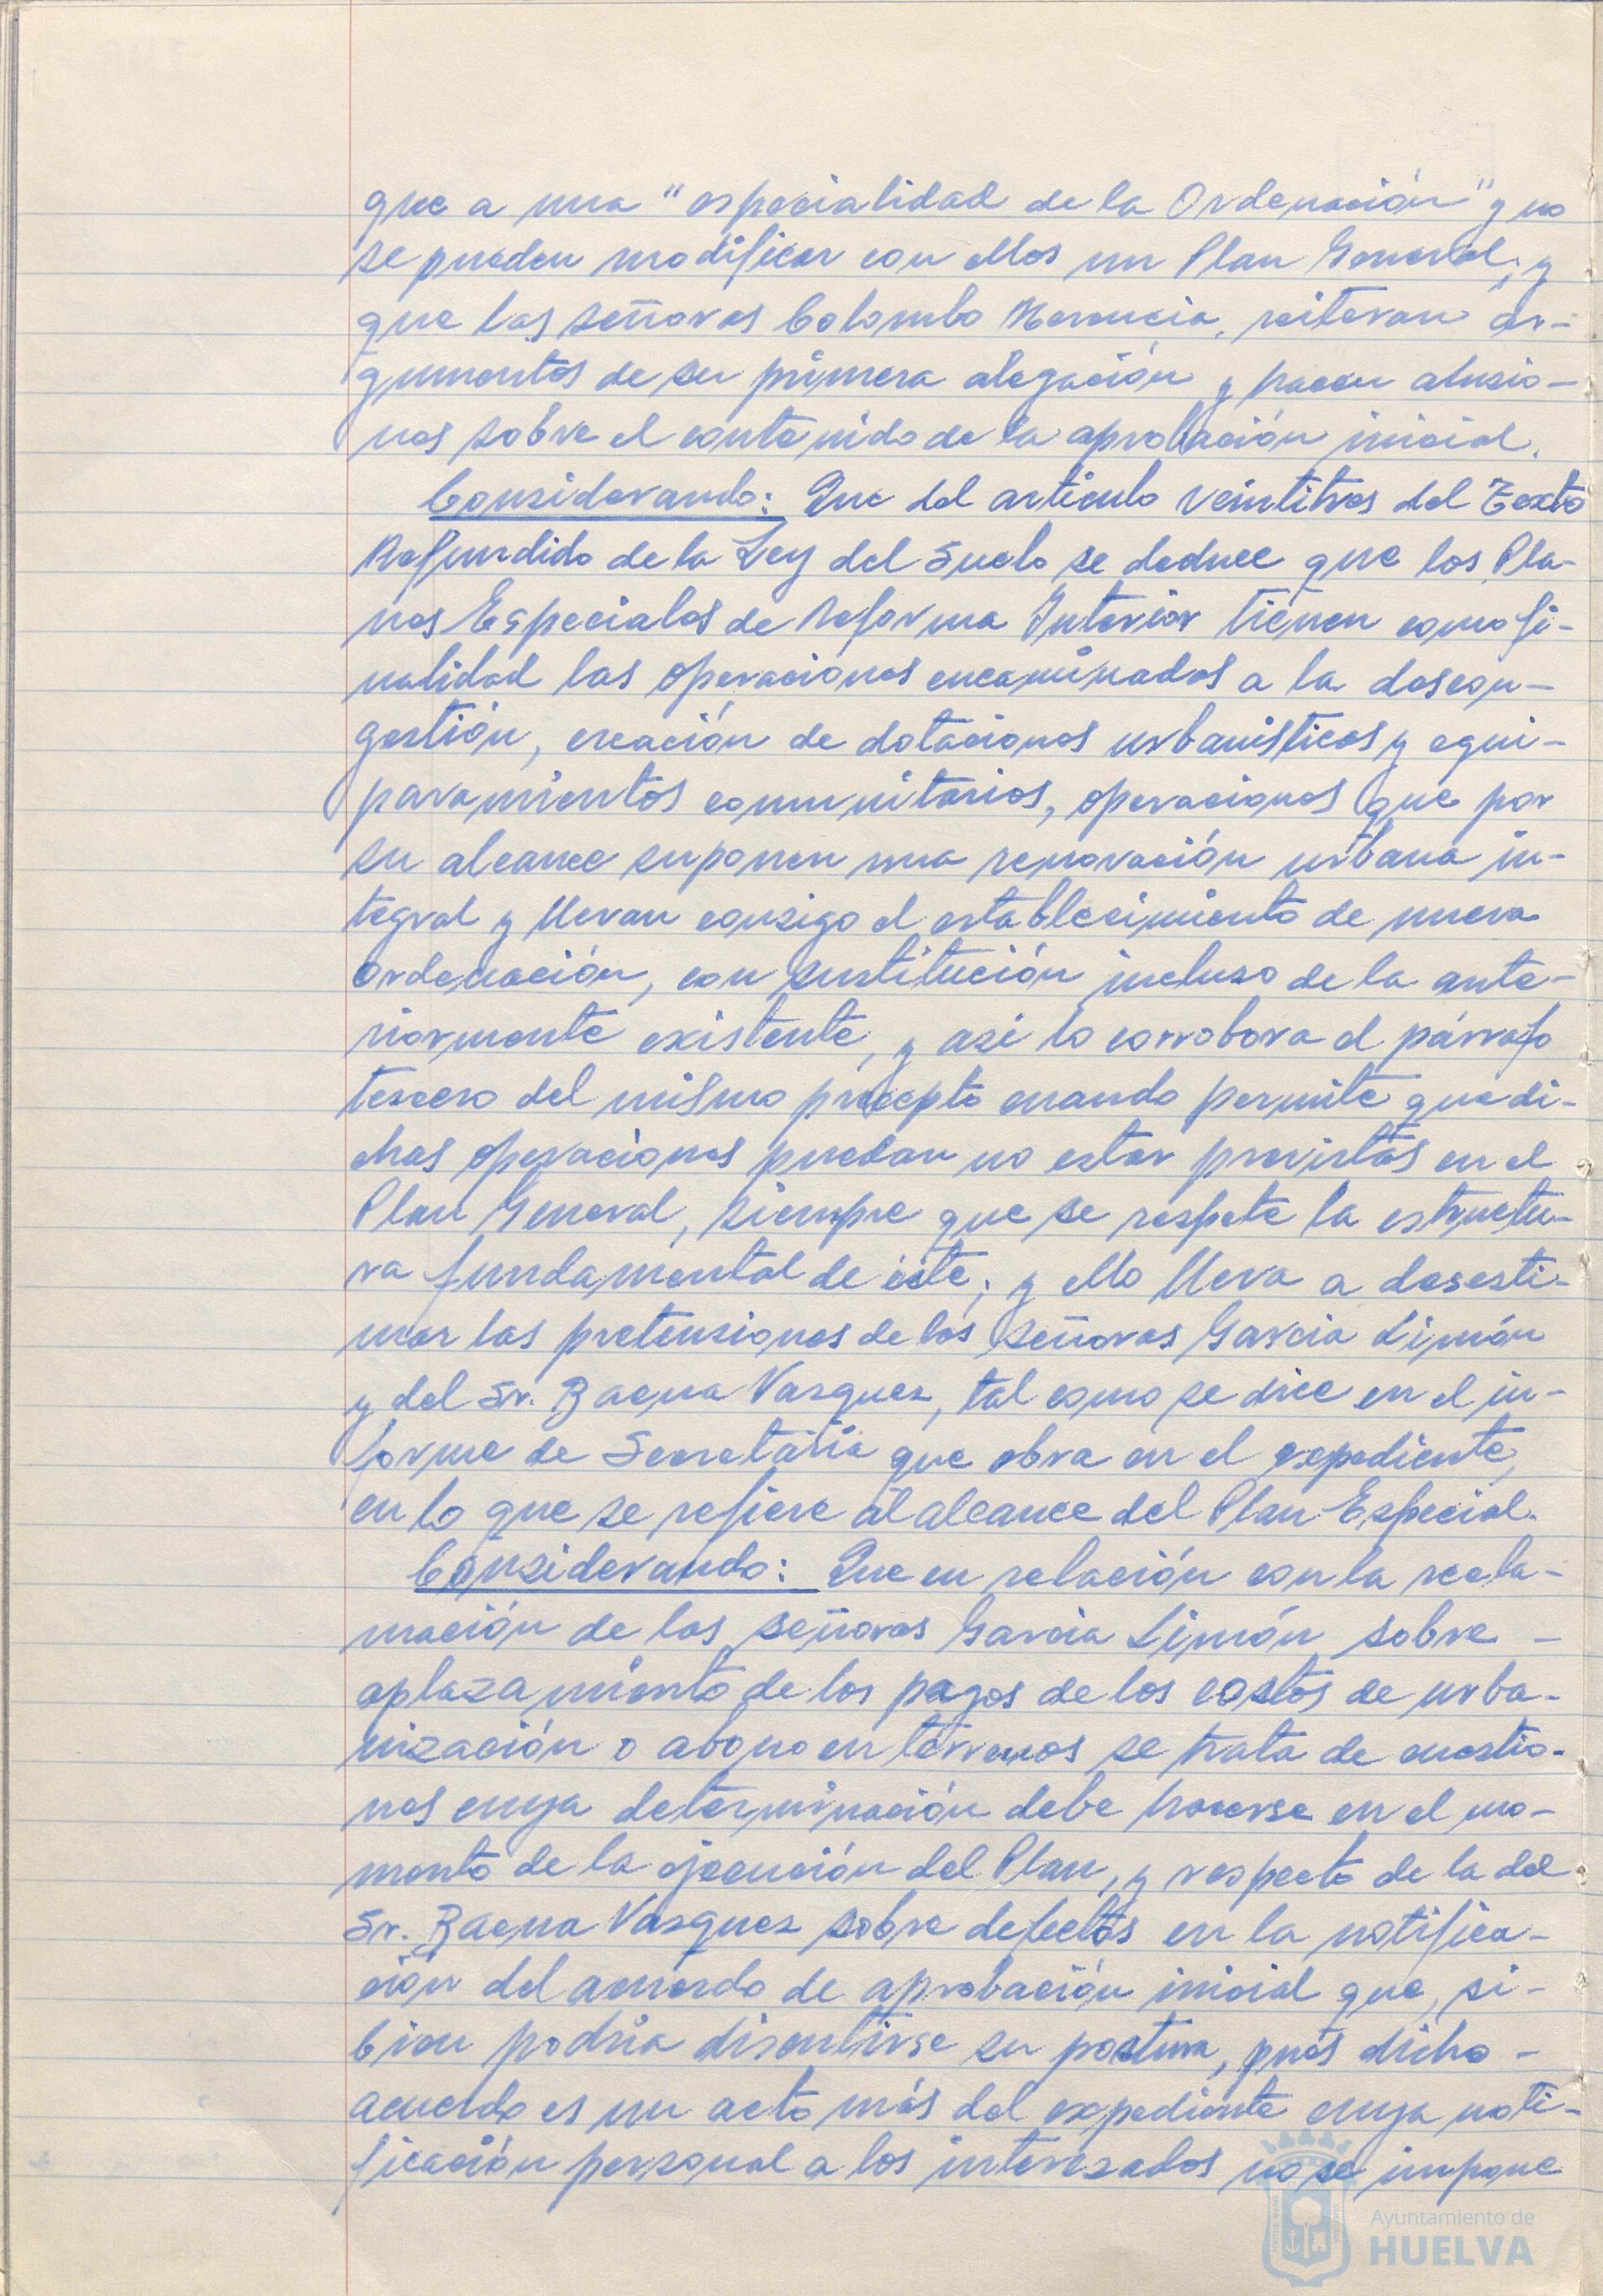 que a una "especialidad de la Ordenación" y no
se pueden modificar con ellos un Plan General; y
que las señoras Colombo Merencia, reiteran ar-
gumentos de su primera alegación y hacen alusio-
nes sobre el contenido de la aprobación inicial.
Considerando: Que del artículo veintitres del Texto
Refundido de la Ley del Suelo se deduce que los Pla-
nes Especiales de Reforma Interior tienen como fi-
nalidad las operaciones encaminadas a la descon-
gestión, creación de dotaciones urbanísticas y equi-
paramientos comunitarios, operaciones que por
su alcance suponen una renovación urbana in-
tegral y llevan consigo el establecimiento de nueva
ordenación, con sustitución incluso de la ante-
riormente existente, y asi lo corrobora el párrafo
tercero del mismo precepto cuando permite que di-
chas operaciones puedan no estar previstas en el
Plan General, siempre que se respete la estructu-
ra fundamental de éste; y ello lleva a desesti-
mar las pretensiones de los señores Garcia Limón
y del Sr. Baena Vazquez, tal como se dice en el in-
forme de Secretaria que obra en el expediente,
en lo que se refiere al alcance del Plan Especial.
Considerando: Que en relación con la recla-
mación de los señores Garcia Limón sobre -
aplazamiento de los pagos de los costos de urba-
nización o abono en terrenos se trata de cuestio-
nes cuya determinación debe hacerse en el mo-
mento de la ejecución del Plan, y respecto de la del
Sr. Baena Vazquez sobre defectos en la notifica-
ción del acuerdo de aprobación inicial que, si-
bien podria discutirse su postura, pués dicho -
acuerdo es un acto más del expediente cuya noti-
ficación personal a los interesados no se impone
Ayuntamiento de
HUELVA